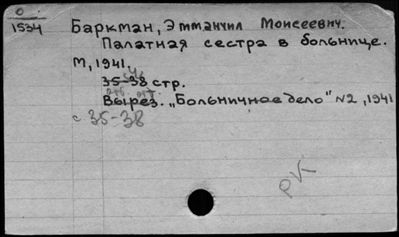 0
1534
Баркман, Эммануил Моисеевич.
Палатная сестра в больнице.
М, 1941.
35-38 стр.
Вырез. „Больничное дело" №2, 1941
с 35-38